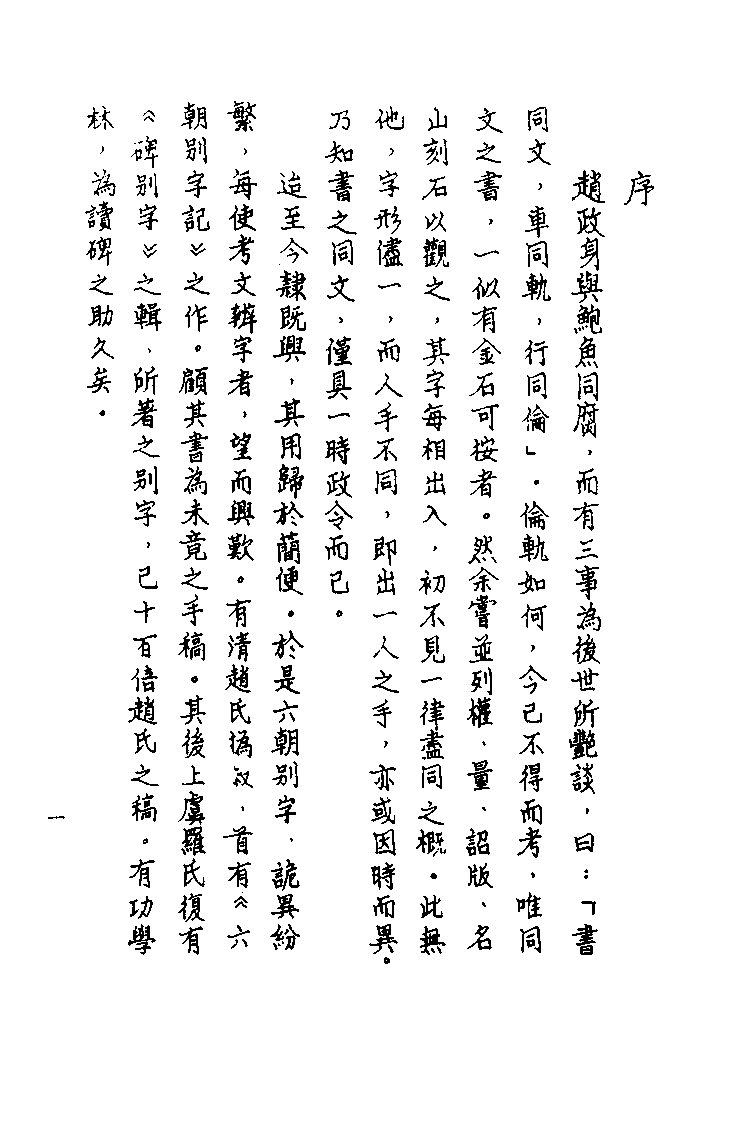 序
趙政身與鮑魚同腐，而有三事為後世所艷談，曰：「書
同文，車同軌，行同倫」。倫軌如何，今已不得而考，唯同
文之書，一似有金石可按者。然余嘗並列權、量、詔版、名
山刻石以觀之，其字每相出入，初不見一律盡同之概。此無
他，字形儘一，而人手不同，即出一人之手，亦或因時而異。
乃知書之同文，僅具一時政令而已。
迨至今隸既興，其用歸於蕳便。於是六朝别字，詭異紛
繁，每使考文辨字者，望而興歎。有清趙氏撝叔，首有《六
朝别字記》之作。顧其書為未竟之手稿。其後上虞羅氏復有
《碑别字》之輯，所著之别字，已十百倍趙氏之稿。有功學
林，為讀碑之助久矣。
一